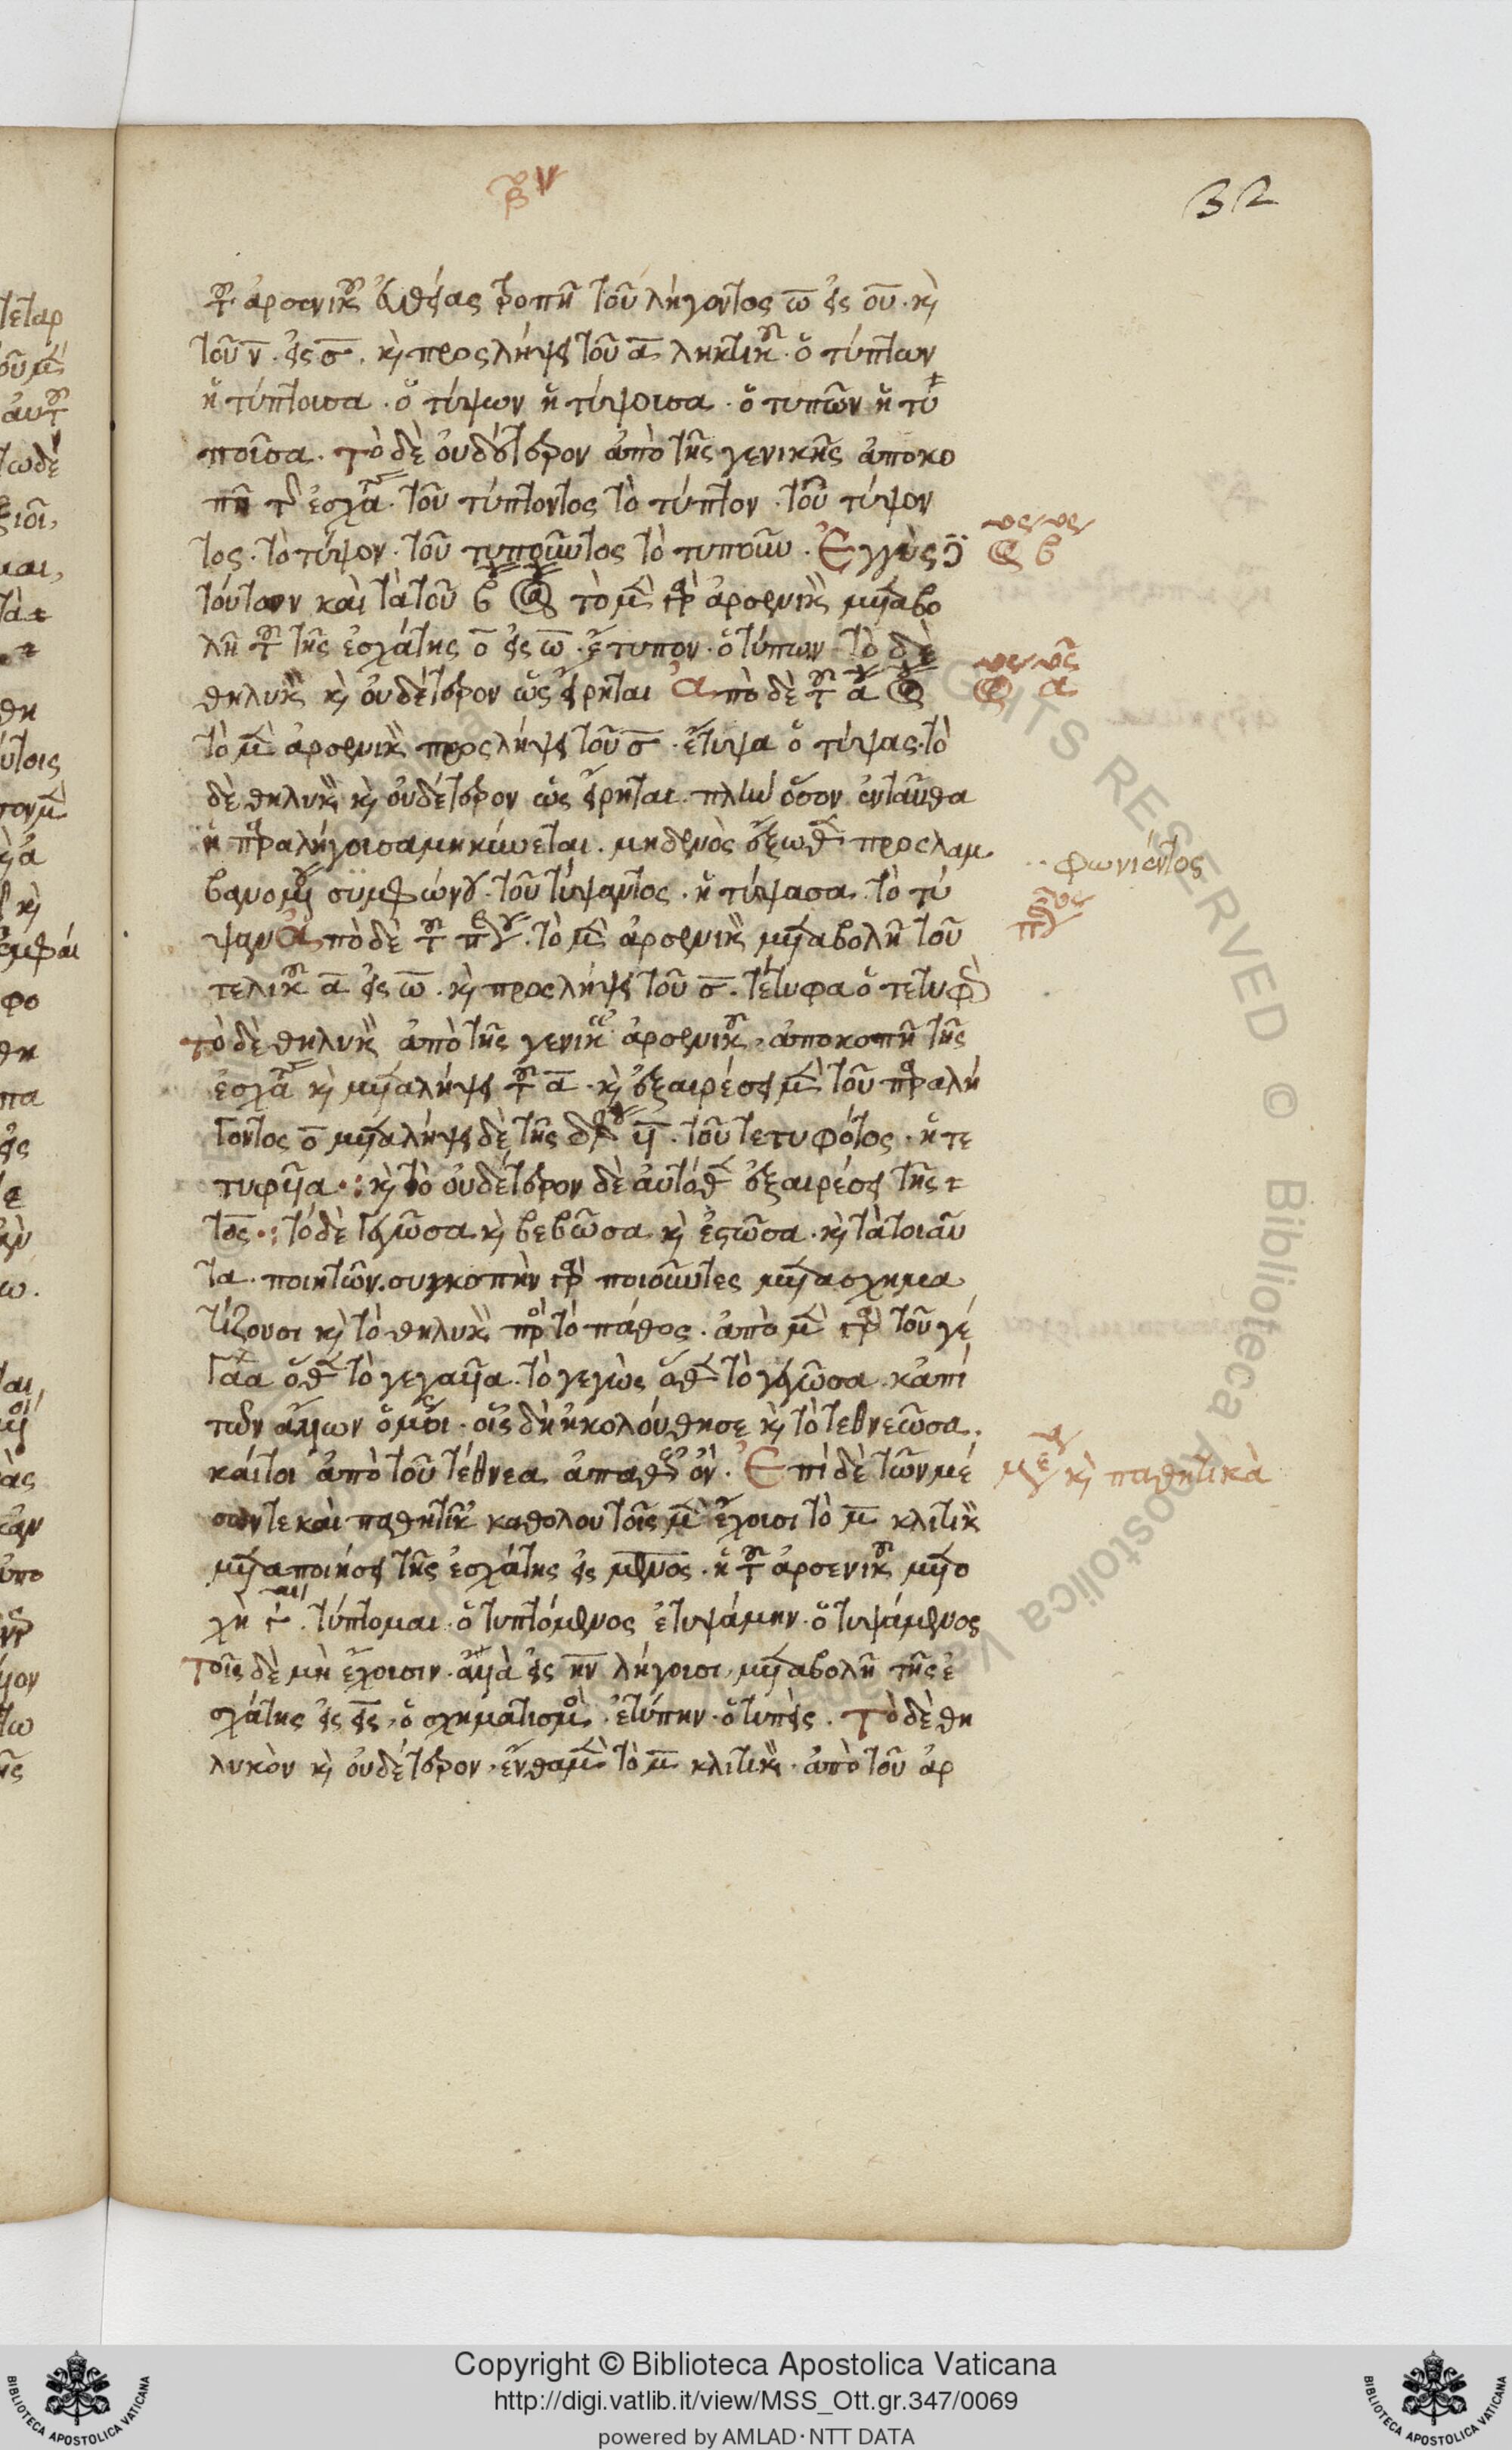 32
τοῦ ἀρσενικοῦ εὐθείας τροπῇ τοῦ λήγοντος ω εἰς ου. καὶ
τοῦ ν. εἰς σ. καὶ προσλήψει τοῦ α ληκτικοῦ. ὁ τύπτων
ἡ τύπτουσα. ὁ τύψων ἡ τύψουσα. ὁ τυπῶν ἡ τυ
ποῦσα. τὸ δὲ οὐδέτερον ἀπὸ τῆς γενικῆς ἀποκο
πῇ τῆς ἐσχάτης. τοῦ τύπτοντος τὸ τύπτον. τοῦ τύψον
τος. τὸ τύψον. τοῦ τυποῦντος τὸ τυποῦν. Ἐγγὺς
τούτων καὶ τὰ τοῦ β τὸ μὲν γὰρ ἀρσενικὸν μεταβο
λῇ τῆς ἐσχάτης ο εἰς ω. ἔτυπον. ὁ τύπων τὸ δὲ
θηλυκὸν καὶ οὐδέτερον ὡς εἴρηται Ἀπὸ δὲ τοῦ α
τὸ μὲν ἀρσενικὸν προσλήψει τοῦ σ. ἔτυψα ὁ τύψας. τὸ
δὲ θηλυκὸν καὶ οὐδέτερον ὡς εἴρηται. πλὴν ὅσον ἐνταῦθα
ἡ παραλήγουσα μηκύνεται. μηδενὸς ἔξωθεν προσλαμ
βανομένου συμφώνου. τοῦ τύψαντος. ἡ τύψασα. τὸ τύ
φωνήεντος
ψαν Ἀπὸ δὲ τοῦ τὸ μὲν ἀρσενικὸν μεταβολῇ τοῦ
τελικοῦ α εἰς ω. καὶ προσλήψει τοῦ σ. τέτυφα ὁ τετυφὼς
τὸ δὲ θηλυκὸν ἀπὸ τῆς γενικῆς ἀρσενικοῦ, ἀποκοπῇ τῆς
ἐσχάτης καὶ μεταλήψει τοῦ α. καὶ ἐξαιρέσει μὲν τοῦ παραλή
γοντος ο μεταλήψει δὲ τῆς τοῦ τετυφότος. ἡ τε
τυφυῖα. καὶ τὸ οὐδέτερον δὲ αὐτόθεν ἐξαιρέσει τῆς
τος. τὸ δὲ γεγῶσα καὶ βεβῶσα καὶ ἑστῶσα. καὶ τὰ τοιαῦ
τα. ποιητῶν. συγκοπὴν γὰρ ποιοῦντες μετασχημα
τίζουσι καὶ τὸ θηλυκὸν πρὸς τὸ πάθος. ἀπὸ μὲν γὰρ τοῦ γέ
γαα ὅθεν τὸ γεγαυῖα. τὸ γεγὼς ὅθεν τὸ γεγῶσα. κἀπὶ
τῶν ἄλλων ὁμοίως. οἷς δὴ ἠκολούθησε καὶ τὸ τεθνεῶσα.
καίτοι ἀπὸ τοῦ τέθνεα ἀπαθὲς ὄν. Ἐπὶ δὲ τῶν μέ
καὶ παθητικὰ
σων τε καὶ παθητικῶν καθόλου τοῖς μὲν ἔχουσι τὸ μ κλιτικὸν
μεταποιήσει τῆς ἐσχάτης εἰς μενος. ἡ τοῦ ἀρσενικοῦ μετο
χὴ τύπτομαι. ὁ τυπτόμενος ἐτυψάμην. ὁ τυψάμενος
τοῖς δὲ μὴ ἔχουσιν. ἀλλὰ εἰς ην λήγουσι, μεταβολῇ τῆς ἐ
σχάτης εἰς εις, ὁ σχηματισμός. ἐτύπην. ὁ τυπείς. τὸ δὲ θη
λυκὸν καὶ οὐδέτερον. ἔνθα μὲν τὸ μ κλιτικὸν. ἀπὸ τοῦ ἀρ
ALL RIGHTS RESERVED © Biblioteca Apostolica Vaticana
Copyright © Biblioteca Apostolica Vaticana
http://digi.vatlib.it/view/MSS_Ott.gr.347/0069
powered by AMLAD · NTT DATA
BIBLIOTECA APOSTOLICA VATICANA
BIBLIOTECA APOSTOLICA VATICANA